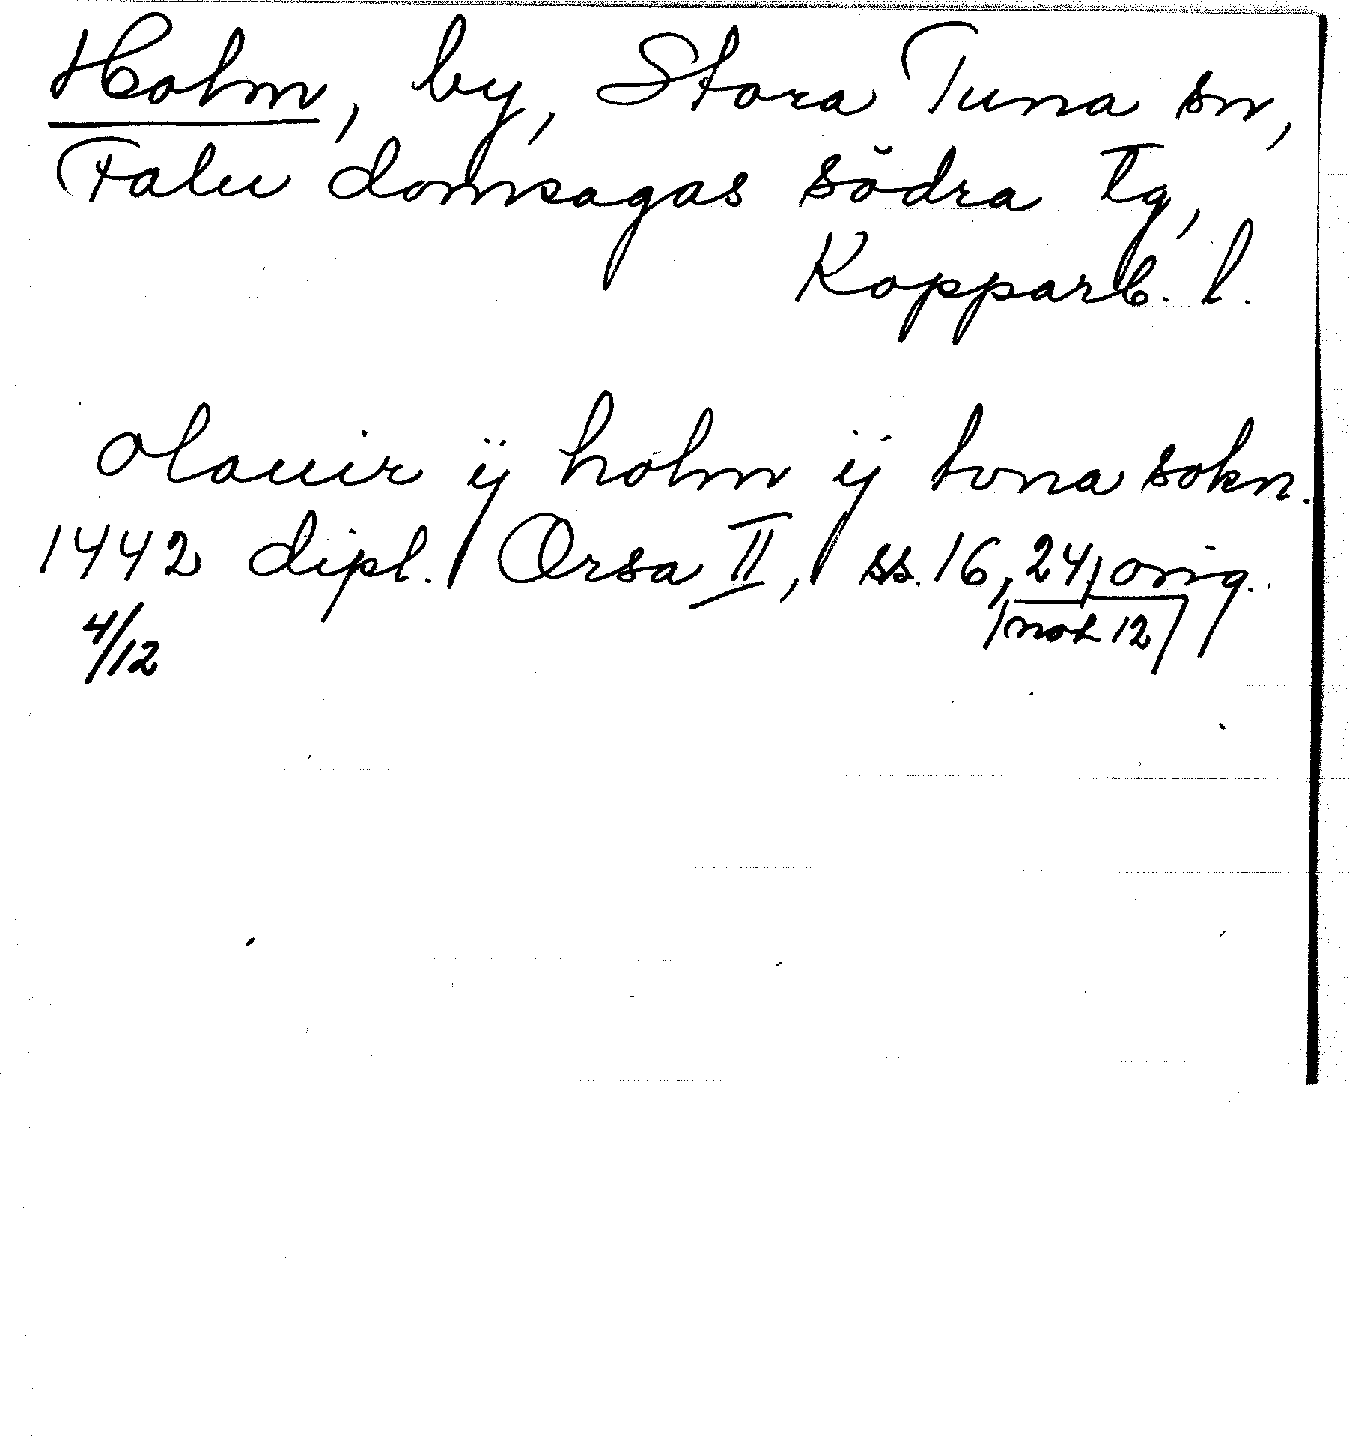 Holm, by, Stora Tuna sn,
Falu domsagas södra tg,
Kopparb. l.
olauir ij holm ij tona sokn.
1442 dipl. Orsa II, ss. 16, 24, orig.
4/12 not 12